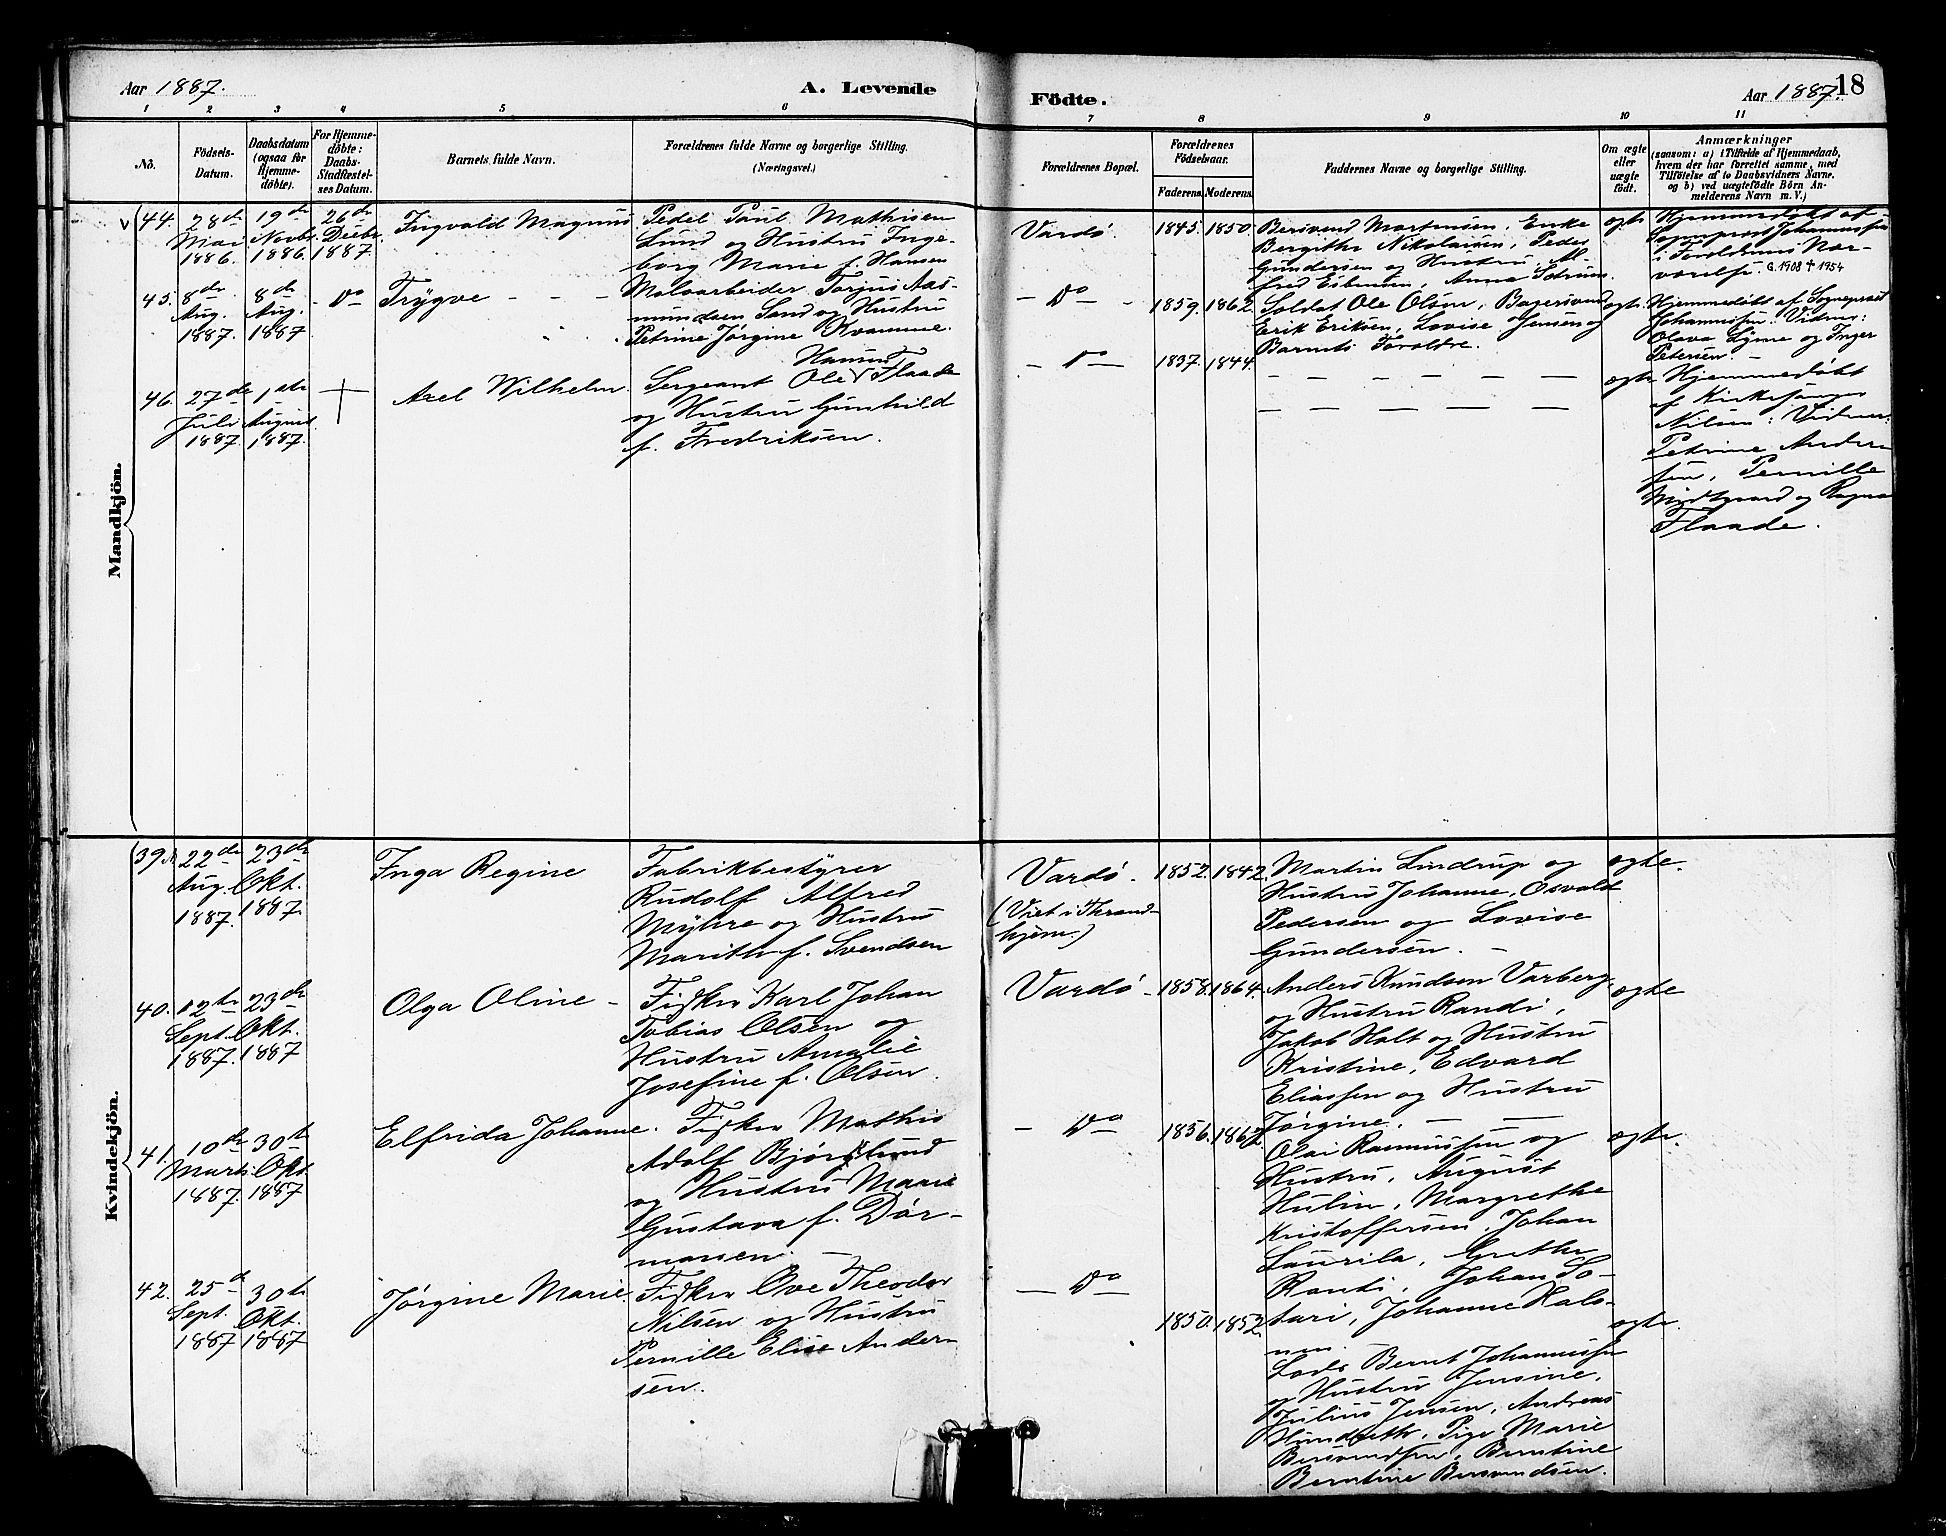 Aar 1887.
A. Levende
Födte.
Aar 1887.
18
1 2 3 4 5 6 7 8 9 10 11
No.
Födsels-
Datum.
Daabsdatum
(ogsaa for
Hjemme-
döbte).
For Hjemme-
döbte:
Daabs-
Stadfæstel-
ses Datum.
Barnets fulde Navn.
Forældrenes fulde Navne og borgerlige Stilling.
(Næringsvei.)
Forældrenes Bopæl.
Forældrenes
Födselsaar.
Faderens. Moderens.
Faddernes Navne og borgerlige Stilling.
Om ægte
eller
uægte
født.
Anmærkninger
(saasom: a) i Tilfælde af Hjemmedaab,
hvem der har forrettet samme, med
Tilföielse af to Daabsvidners Navne,
og b) ved uægtefödte Börn An-
melderens Navn m. V.)
Mandkjön.
44.
28de
Mai
1886.
19de
Novbr.
1886.
26de
Decbr.
1887.
Ingvald Magnus
Pedel Paul Mathisen
Lund og Hustru Inge-
borg Marie f. Hansen
Vardø
1845. 1850.
Bersvend Martensen, Enke
Bergithe Nikolaisen, Peder
Gundersen og Hustru, Al-
fred Esbensen, Anna
ægte
Hjemmedøbt af
Sognepræst Johannessen
i Forældrenes Nær-
værelse. G. 1908 † 1954
45.
8de
Aug.
1887.
8de
Aug.
1887
- Do
Trygve - - -
Malvarbeider Torjus Aas-
mundsen Sand og Hustru
Petrine Jørgine Kvamme.
- Do -
1859. 1862.
Soldat Ole Olsen, Bagersvend
Erik Eriksen, Lovise Jensen og
Barnets Forældre.
ægte.
Hjemmedøbt af Sognepræst
Johannessen: Vidner:
Olava Lynne og Inger
Petersen. -
46.
27de
Juli
1887.
1ste
August
1887.
Axel Wilhelm.
Hansen
Sergeant Ole Flaade
og Hustru Gunhild
f. Fredriksen.
- Do -
1837. 1844.
- - - - - -
- - - - - -
ægte
Hjemmedøbt
af Kirkesanger
Nilsen: Vidner:
Petrine Ander-
sen, Pernille
Midtgaard og Ragna
Flaade.
Kvindekjön.
39.
22de
Aug.
1887.
23de
Okt.
1887.
Inga Regine
Fabrikbestyrer
Rudolf Alfred
Myhre og Hustru
Marith f. Svendsen
Vardø.
(Viet i Thrond-
hjem.)
1852. 1842.
Martin Lindrup og
Hustru Johanne, Osvald
Pedersen og Lovise
Gundersen. -
ægte.
40.
12te
Sept.
1887.
23de
Okt.
1887
Olga Oline -
Fisker Karl Johan
Tobias Olsen og
Hustru Amalie
Josefine f. Olsen.
Vardø -
1858. 1864.
Anders Knudsen Varberg
og Hustru Randi,
Jakob Holt og Hustru
Kristine, Edvard
Eliassen og Hustru
Jørgine. - -
ægte
41.
10de
Marts
1887.
30te
Okt.
1887
Elfrida Johanne.
Fisker Mathis
Adolf Bjørklund
og Hustru Maarie
Gustava f. Dør-
mænen. -
- Do -
1856. 1862.
Olai Rasmussen og
Hustru, August
Hulin, Margrethe
Kristoffersen, Johan
Laurila, Grethe
Ranti, Johan So-
tari, Johanne Hals-
nen.
ægte.
42.
25de
Sept.
1887
30te
Okt.
1887
Jørgine Marie
Fisker Ove Theodor
Nilsen og Hustru
Pernille Elise Ander-
sen.
- Do -
1850. 1852.
Lods Bernt Johannessen
og Hustru Jensine,
Julius Jensen, Andreas
Pige Marie
Bersvendsen, Berntine
Berntine Bersvendsen.
ægte.